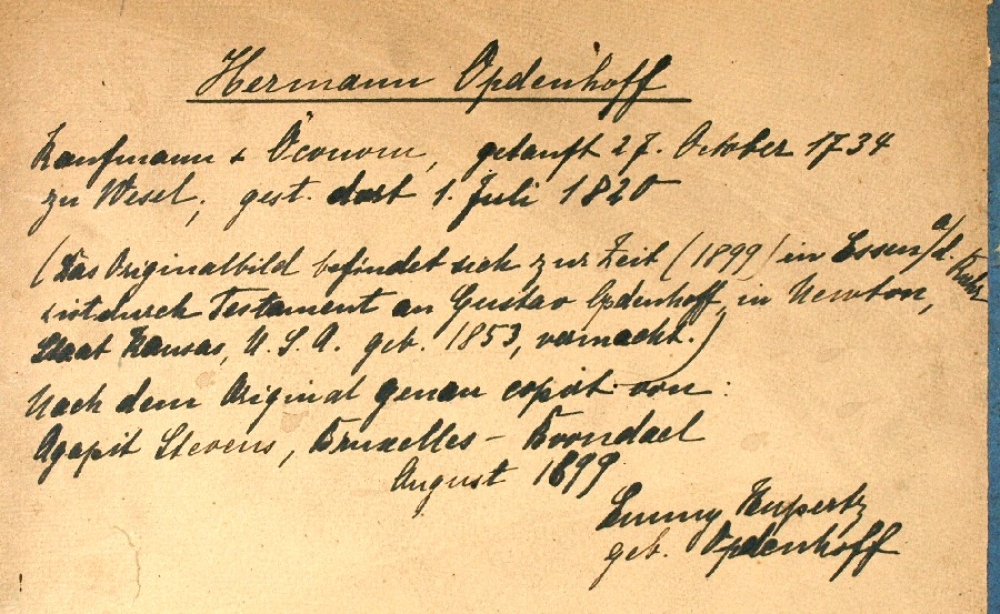 Hermann Opdenhoff
Kaufmann & Öconom, getauft 27. October 1734
zu Wesel, gest. dort 1. Juli 1820
(Das Originalbild befindet sich zur Zeit (1899) in Essen a/d. Ruhr
ist durch Testament an Gustav Opdenhoff in Newton,
Staat Kansas, U. S. A. geb. 1853, vermacht.)
Nach dem Original genau copirt von:
Agapit Stevens, Bruxelles - Boondael
August 1899
Emmy Hupertz
geb. Opdenhoff